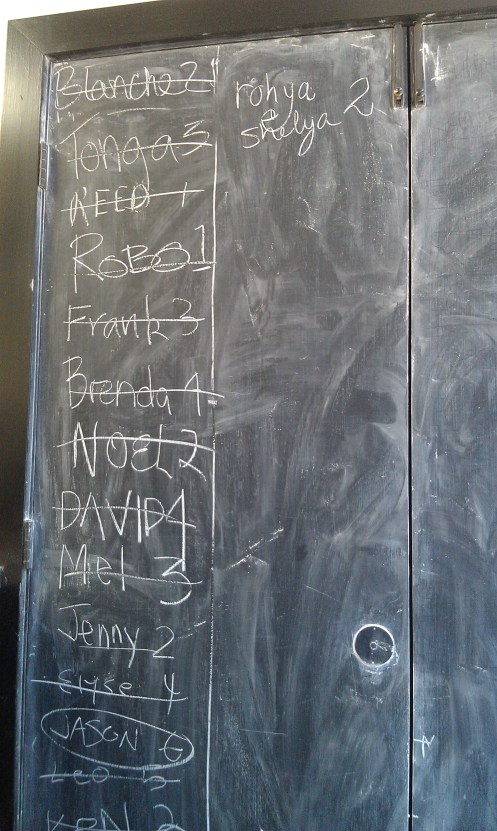 Blanche 2
Tonga 3
NEED 1
ROBO 1
Frank 3
Brenda 4
NOEL 2
DAVID 4
Mel 3
Jenny 2
Elyse 4
JASON 6
LEO
KEN 2
rohya 2
shelya